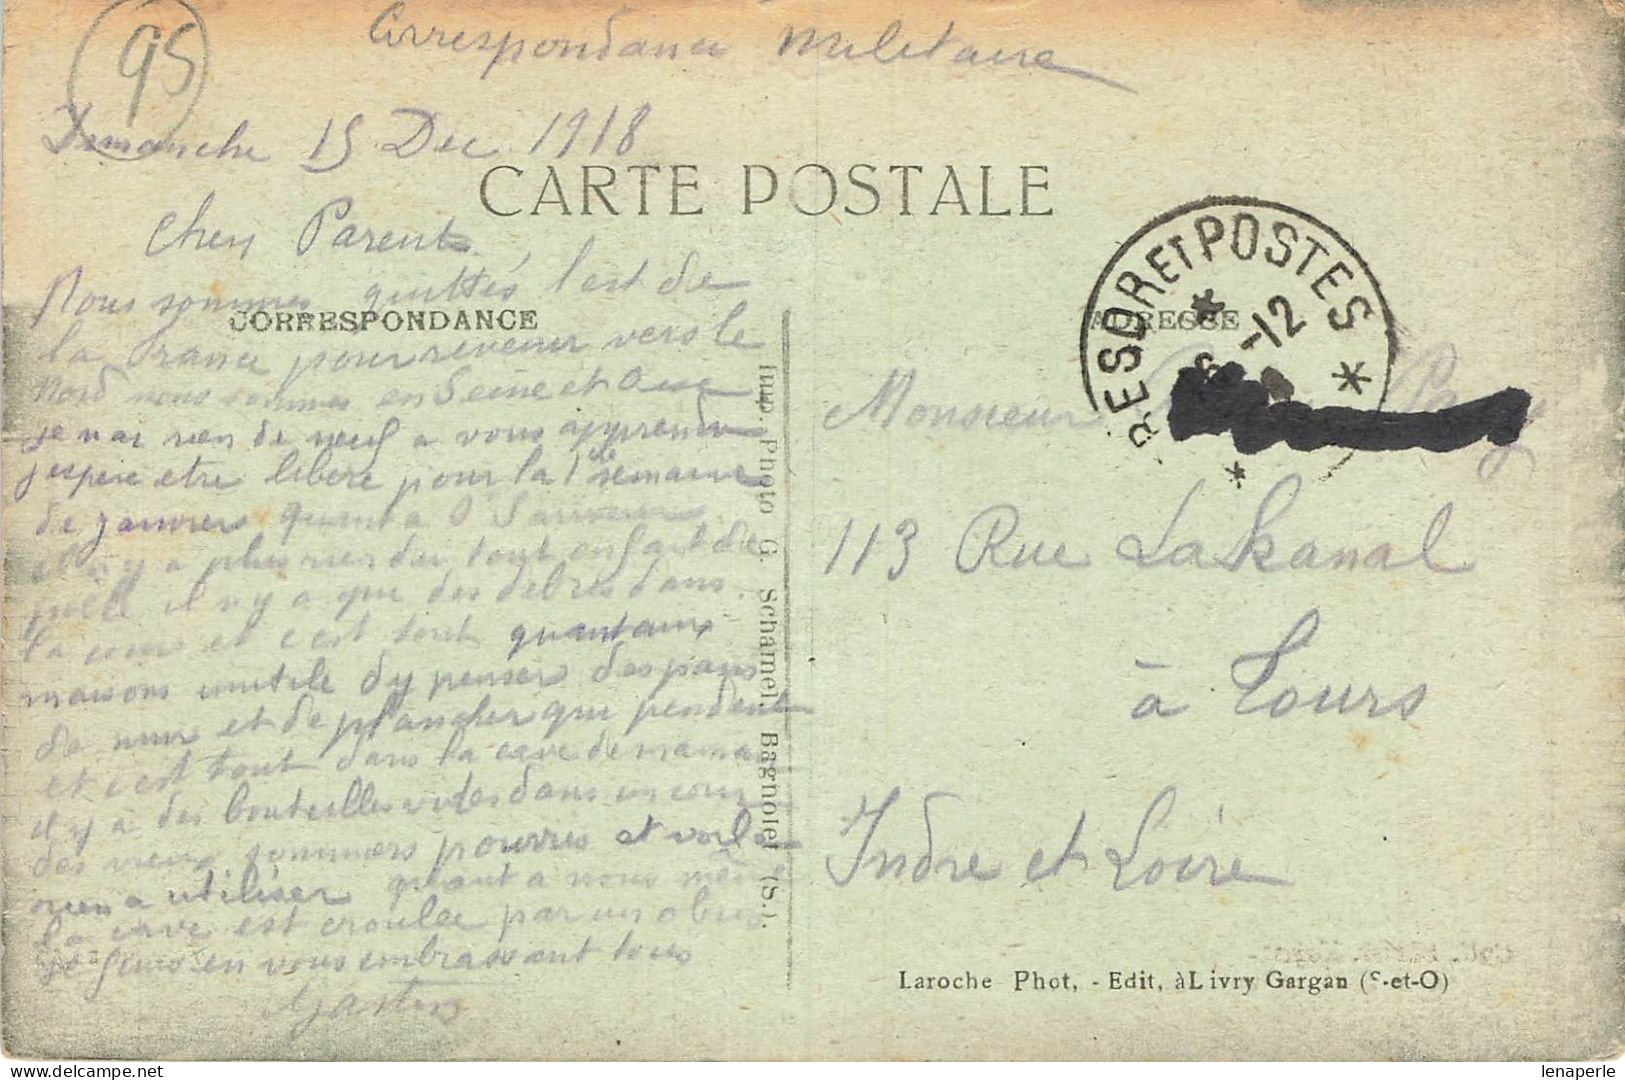 95
Correspondance Militaire
Dimanche 15 Dec 1918
CARTE POSTALE
Chers Parents
CORRESPONDANCE
Nous sommes quittés l'est de
la France pour revenir vers le
Nord nous sommes en Seine et Oise
je nai rien de neuf a vous apprendre
jespere etre libere pour la 1re semaine
de janvier quant a
il n y a plus rien du tout en fait de
il n y a que des debris dans
la cour et c'est tout quant aux
maisons inutile dy penser des pans
de mur et de plancher qui pendent
et c'est tout dans la cave de maman
il y a des bouteilles vides dans un coin
des vieux sommiers pourris et voila
rien a utiliser quant a nous même
la cave est croulée par un obus
je finis en vous embrassant tous
Gaston
Imp. Photo G. Schamel. Bagnolet (S.).
TRESOR ET POSTES
-12
ADRESSE
Monsieur
113 Rue LaKanal
à Tours
Indre et Loire
Laroche Phot, - Edit, à Livry Gargan (S-et-O)
delcampe.net
lenaperle